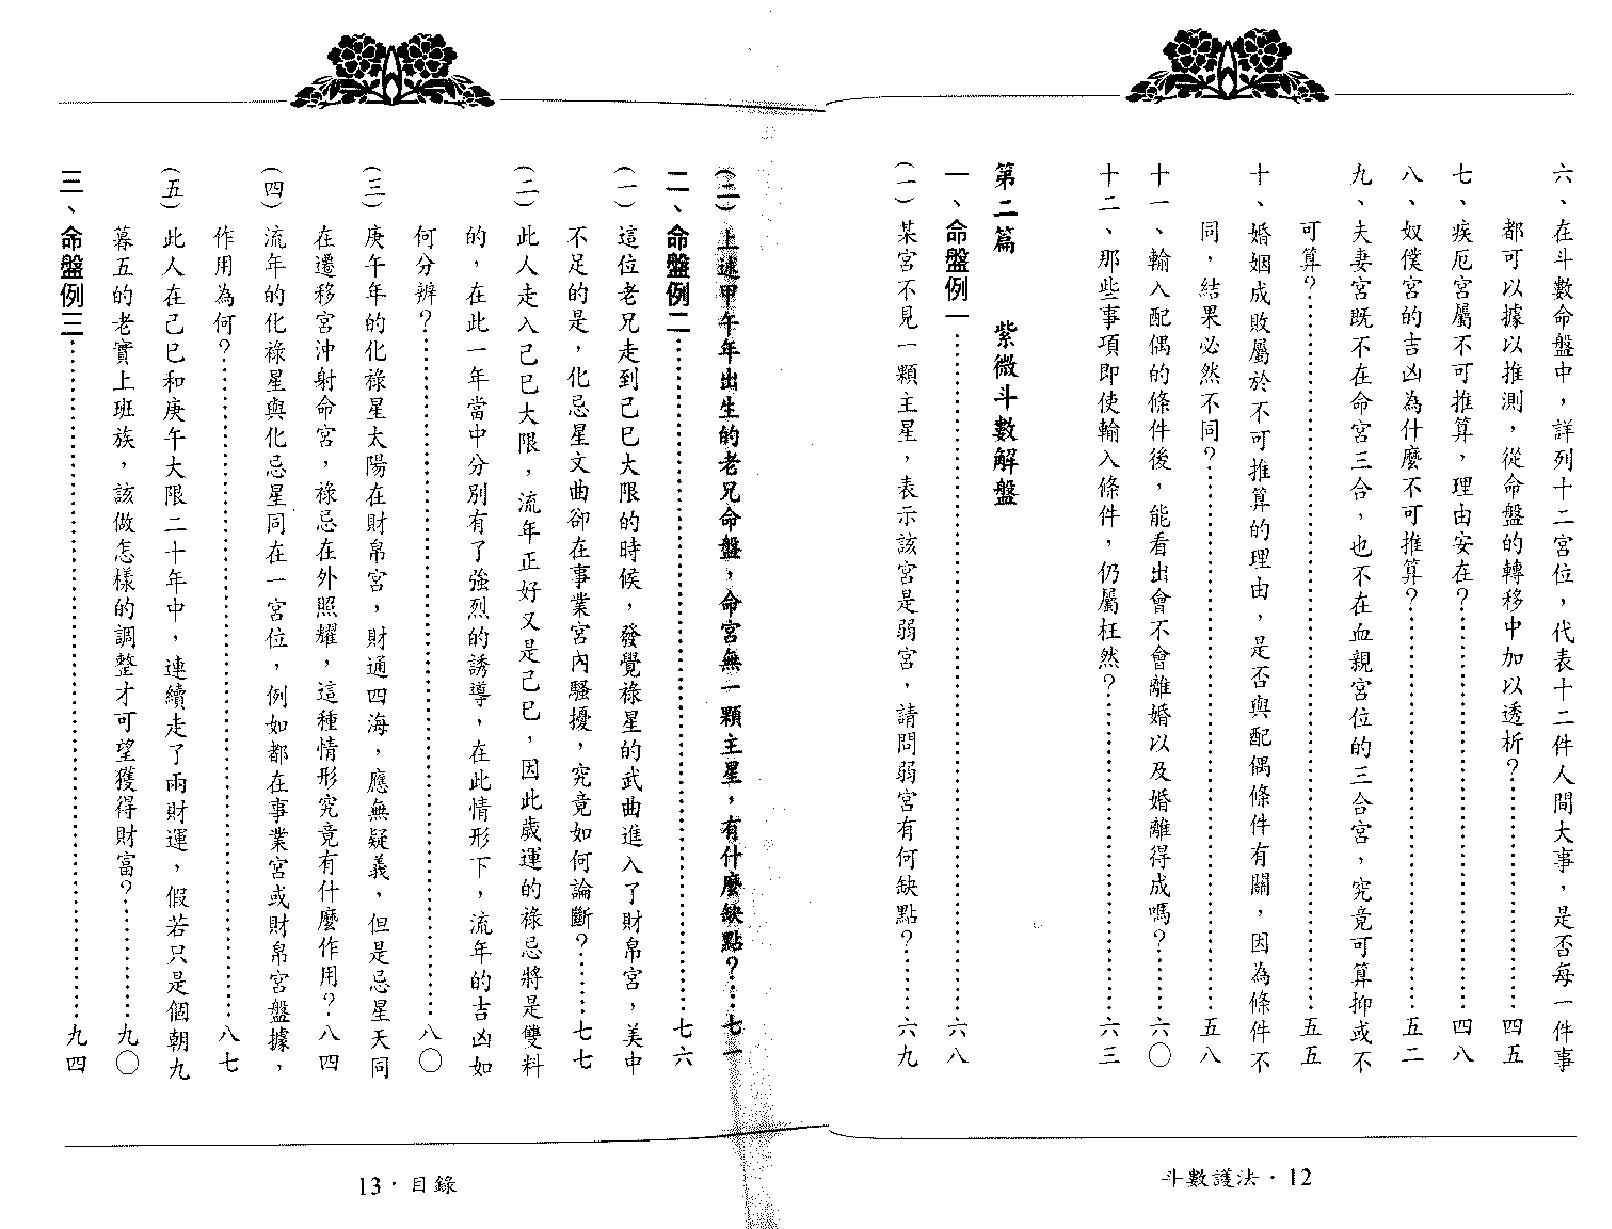 六、在斗數命盤中，詳列十二宮位，代表十二件人間大事，是否每一件事
都可以據以推測，從命盤的轉移中加以透析？…………四五
七、疾厄宮屬不可推算，理由安在？…………四八
八、奴僕宮的吉凶為什麼不可推算？…………五二
九、夫妻宮既不在命宮三合，也不在血親宮位的三合宮，究竟可算抑或不
可算？…………五五
十、婚姻成敗屬於不可推算的理由，是否與配偶條件有關，因為條件不
同，結果必然不同？…………五八
十一、輸入配偶的條件後，能看出會不會離婚以及婚離得成嗎？…………六〇
十二、那些事項即使輸入條件，仍屬枉然？…………六三
第二篇　紫微斗數解盤
一、命盤例一…………六八
(一)某宮不見一顆主星，表示該宮是弱宮，請問弱宮有何缺點？……六九
斗數護法・12
(二)上述甲午年出生的老兄命盤，命宮無一顆主星，有什麼缺點？…七一
二、命盤例二…………七六
(一)這位老兄走到己巳大限的時候，發覺祿星的武曲進入了財帛宮，美中
不足的是，化忌星文曲卻在事業宮內騷擾，究竟如何論斷？……七七
(二)此人走入己巳大限，流年正好又是己巳，因此歲運的祿忌將是雙料
的，在此一年當中分別有了強烈的誘導，在此情形下，流年的吉凶如
何分辨？…………八〇
(三)庚午年的化祿星太陽在財帛宮，財通四海，應無疑義，但是忌星天同
在遷移宮沖射命宮，祿忌在外照耀，這種情形究竟有什麼作用？八四
(四)流年的化祿星與化忌星同在一宮位，例如都在事業宮或財帛宮盤據，
作用為何？…………八七
(五)此人在己巳和庚午大限二十年中，連續走了兩財運，假若只是個朝九
暮五的老實上班族，該做怎樣的調整才可望獲得財富？………九〇
三、命盤例三…………九四
13・目錄